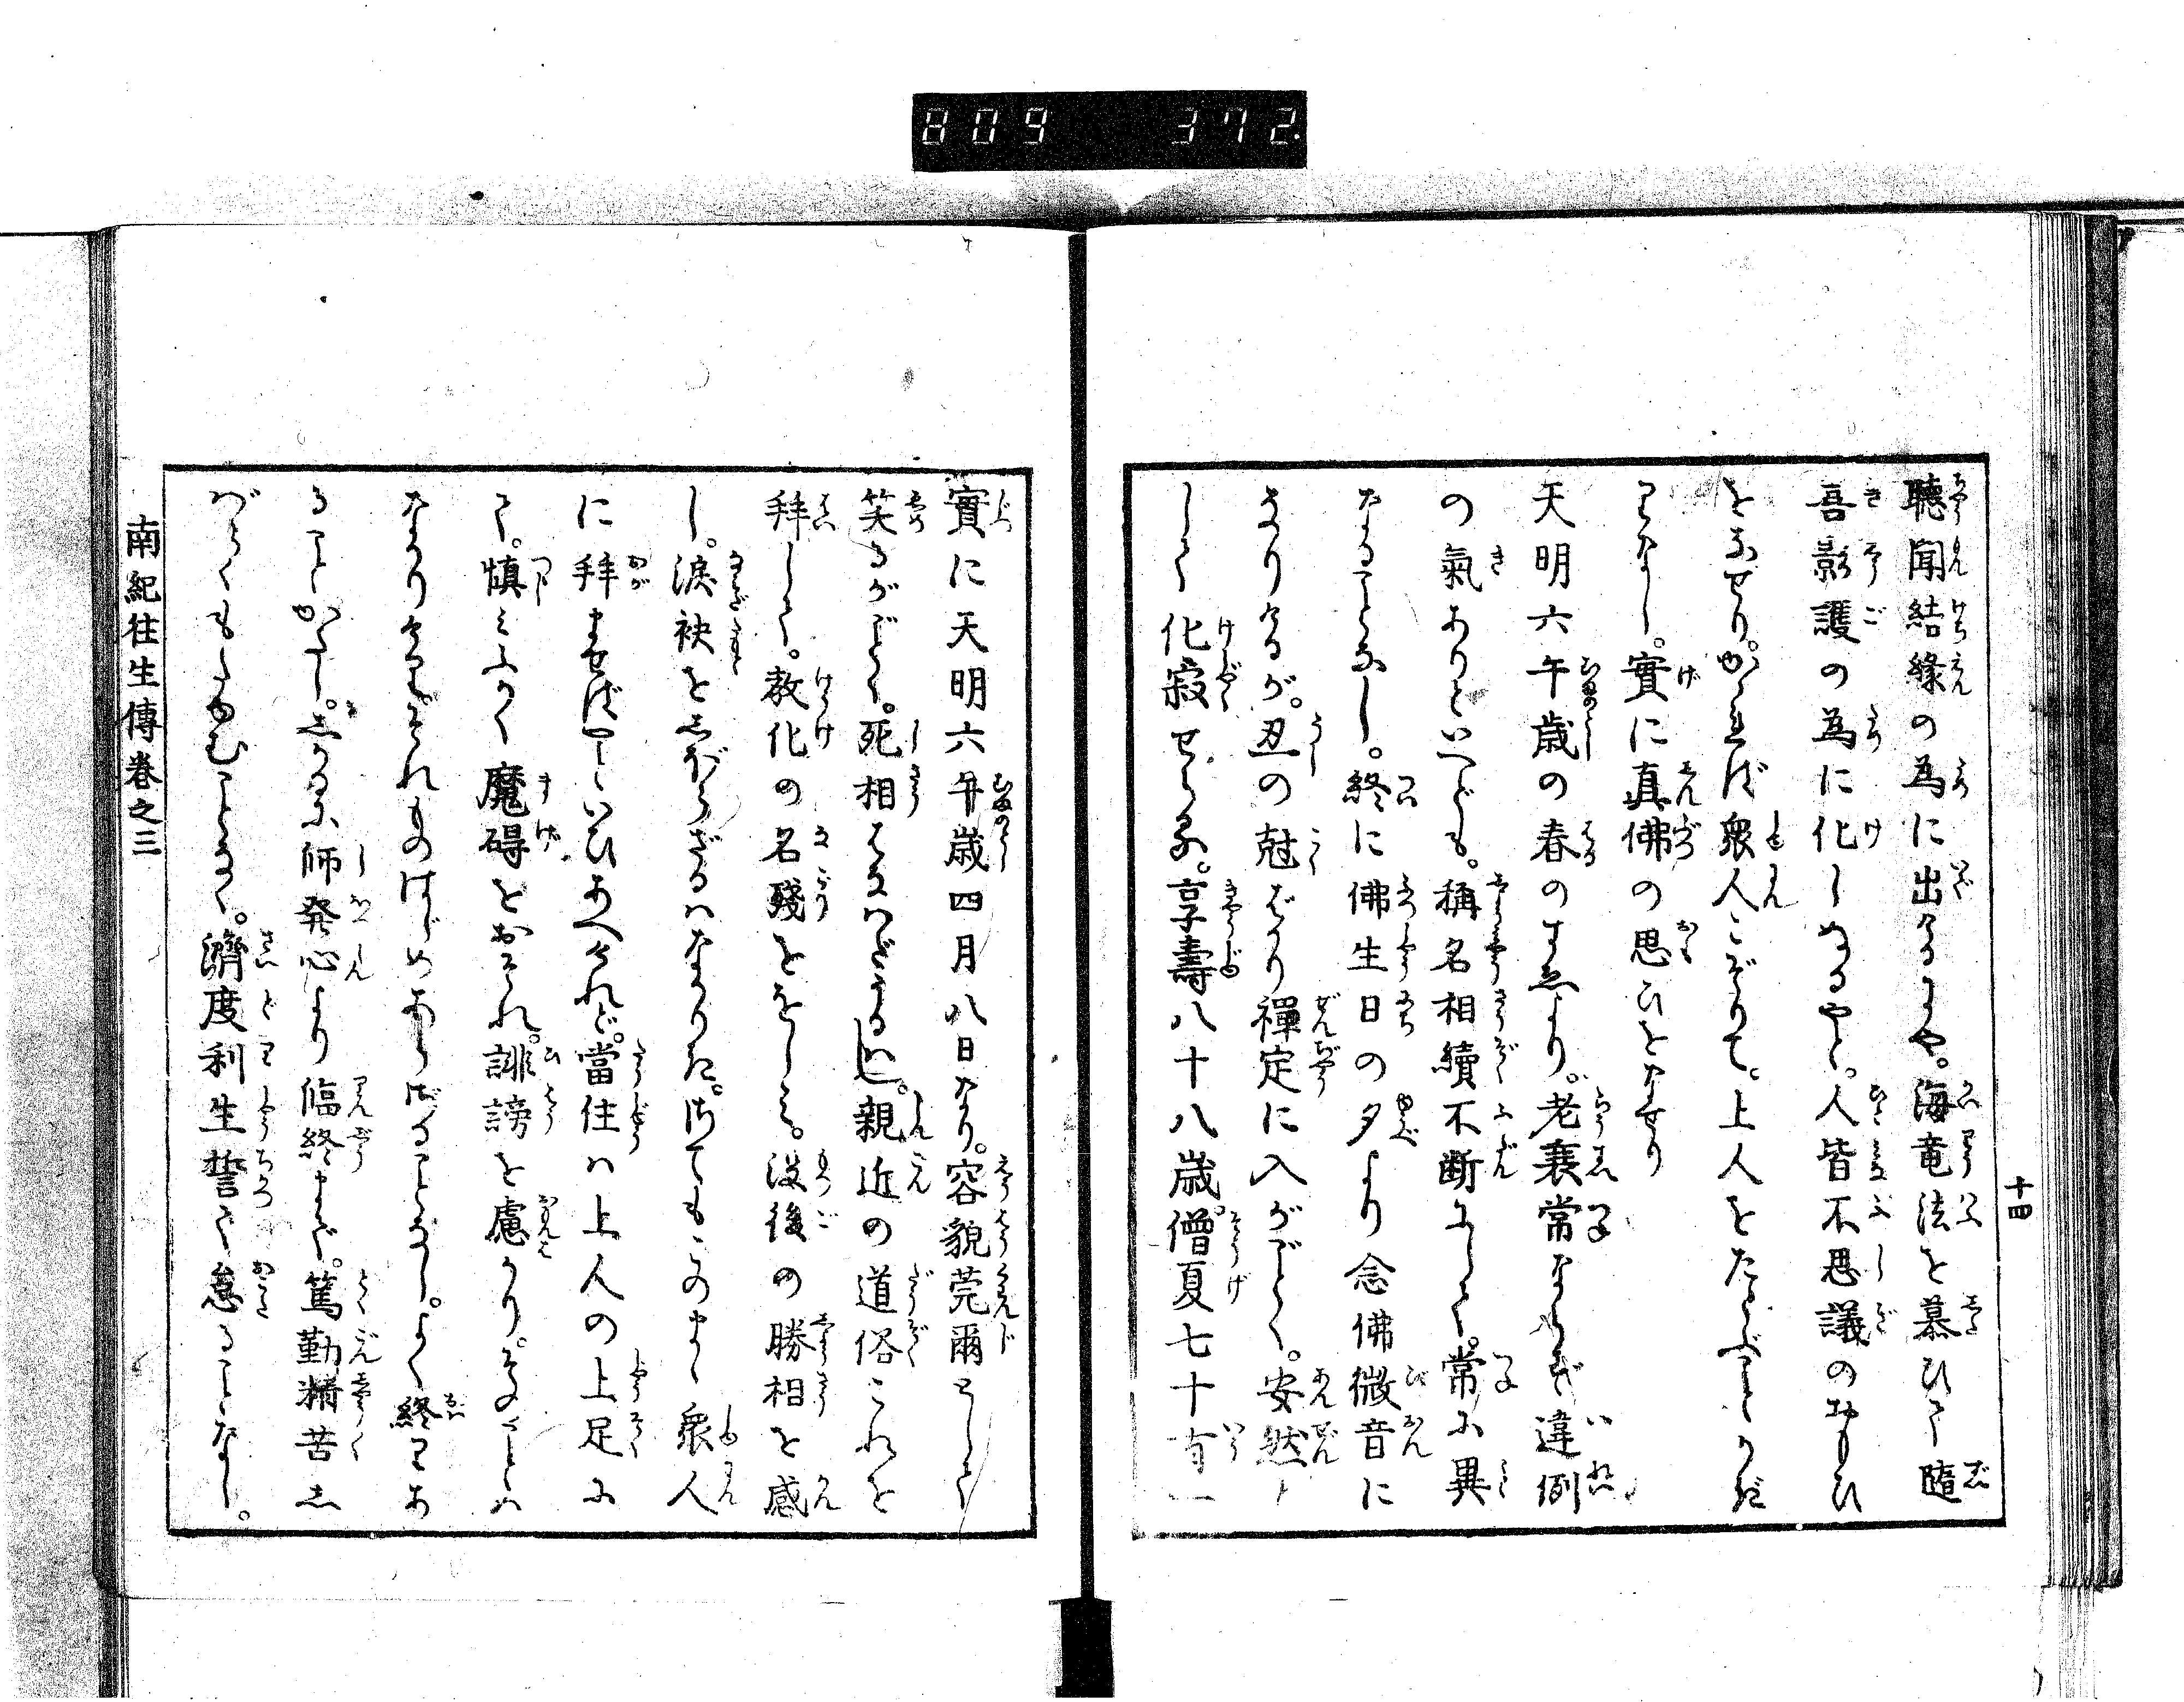 809 372
十四
聴聞結縁の為に出けるにや。海竜法を慕ひて随
喜影護の為に化しぬるやと。人皆不思議のおもひ
をなせり。かゝれば衆人こぞりて。上人をたとぶことかぎ
りなし。實に真佛の思ひをなせり
天明六午歳の春のすゑより。老衰常ならず違例
の氣ありといへども。稱名相續不断にして。常に異
なることなし。終に佛生日の夕より念佛微音に
なりけるが。丑の尅ばかり禪定に入がごとく。安然と
して化寂せらる。享壽八十八歳。僧夏七十有一
實に天明六午歳四月八日なり。容貌莞爾として
笑るがごとく。死相あらはざるは。親近の道俗これを
拜して。教化の名殘ををしみ。没後の勝相を感
し。涙袂をしぼらざるはなかりき。さてもこのまゝ衆人
に拜ませばやといひあへけれど。當住は上人の上足に
て。慎みふかく魔碍をおそれ。誹謗を慮り。そのことは
なかりけり。それものはじめあらざることなし。よく終りあ
ることかたし。しかるに師発心より臨終まで。篤勤精苦し
ばらくもたゆむことなく。濟度利生誓て怠ることなし。
南紀往生傳卷之三